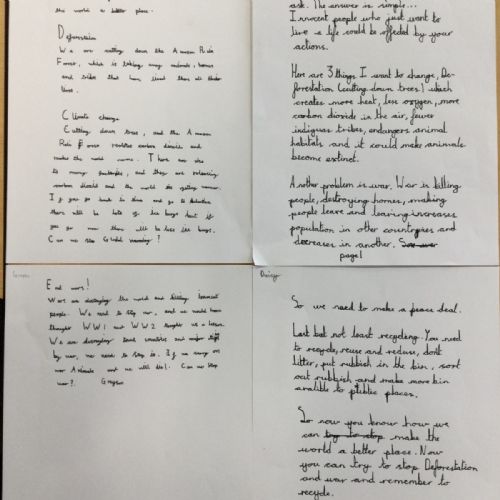 the world a better place.
Deforestation
We are cutting down the Amazon Rain
Forest, which is taking away animals, homes
and tribes that have lived there all their
lives.
Climate change
Cutting down trees, and the Amazon
Rain Forest realises carbon dioxide and
makes the world warm. There are also
to many factories, and they are releasing
carbon dioxide and the world is getting warmer.
If you go back in time and go to Antarctica
there will be lots of ice bergs but if
you go now there will be less ice bergs.
Can we stop Global Warming?
ask. The answer is simple...
Innocent people who just want to
live a life could be affected by your
actions.
Here are 3 things I want to change, De-
forestation (cutting down trees) which
creates more heat, less oxygen, more
carbon dioxide in the air, fewer
indiguas tribes, endangers animal
habitats and it could make animals
become extinct.
Another problem is war. War is killing
people, destroying homes, making
people leave and leaving increases
population in other countryies and
decreases in another.
page 1
End wars!
Wars are destroying the world and killing innocent
people. We need to stop war, and we would have
thought WW1 and WW2 taught us a lesson.
We are destroying land countries and major
by war, we need to stop it. If we carry on
war and we will die! Can we stop
war?
Daisy
So we need to make a peace deal.
Last but not least recycleng. You need
to recycle, reuse and reduse, dont
litter, put rubbish in the bin, sort
out rubbish and make more bin
avalible to public places.
So now you know how we
can try to stop make the
world a better place. Now
you can try to stop Deforestation
and war and remember to
recycle.